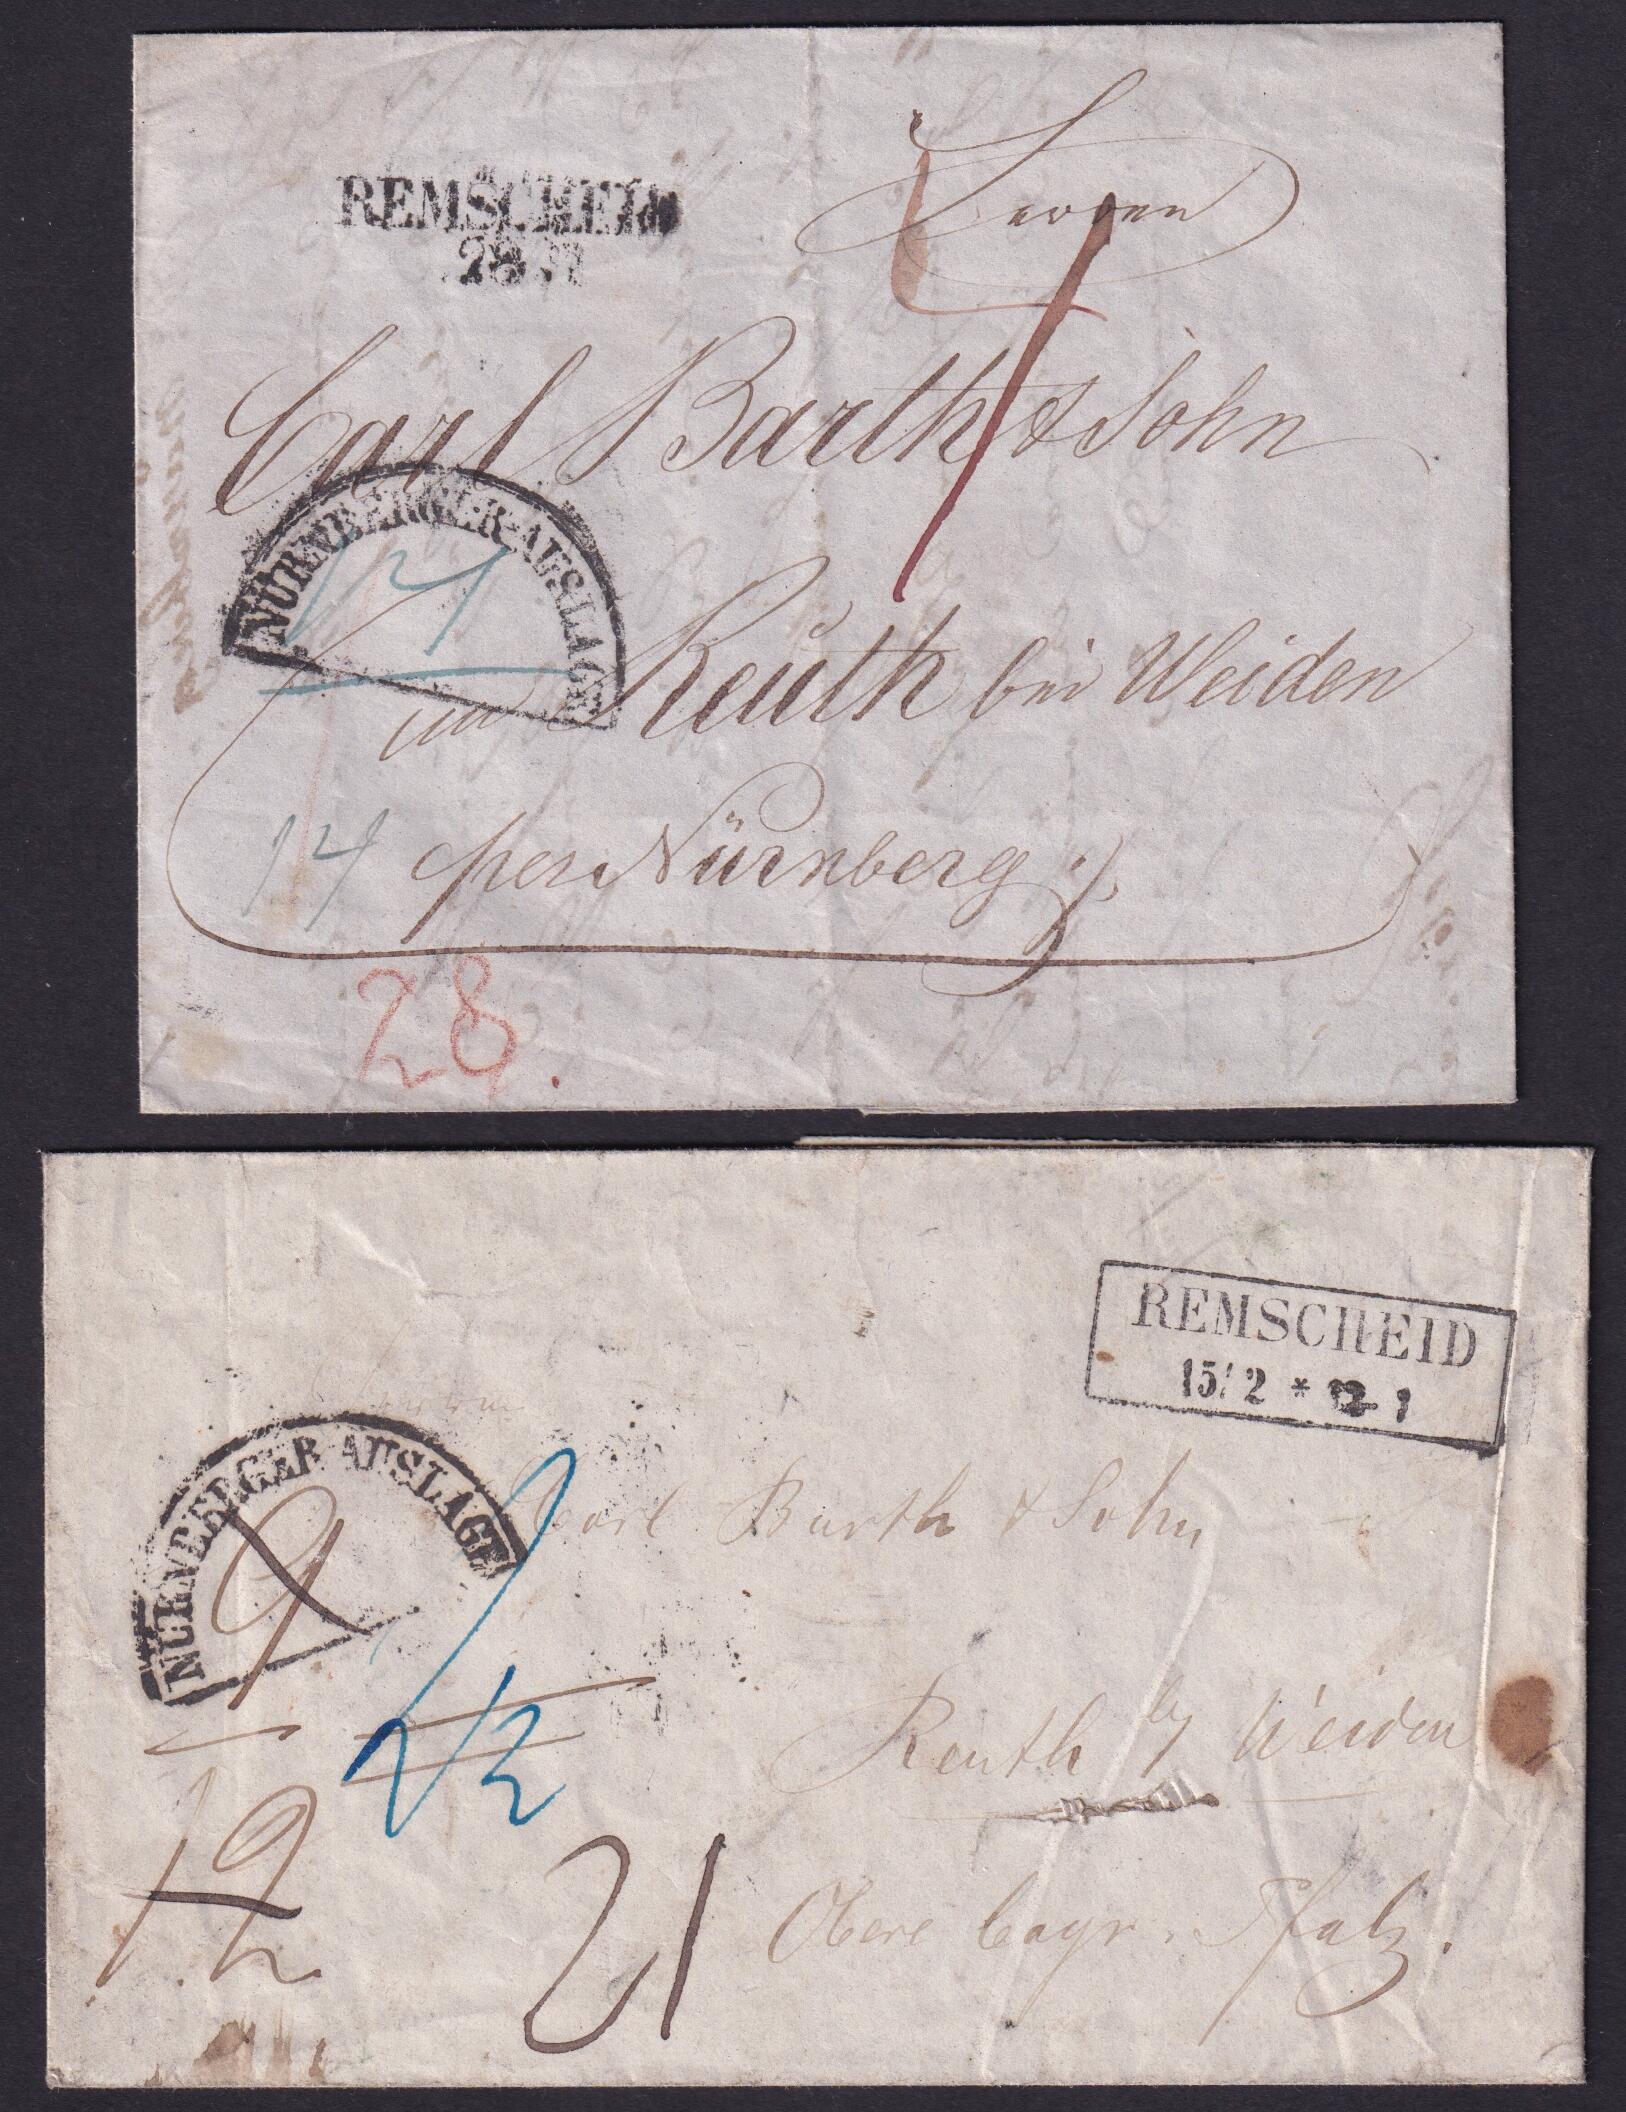 REMSCHEID
Herren
Carl Barth & Sohn
NÜRNBERGER AUSLAGE
in Reuth bei Weiden
14
per Nürnberg
28.
REMSCHEID
15/2 * 12-1
NÜRNBERGER AUSLAGE
9
Carl Barth & Sohn
Reuth by Weiden
12
21
Obere bayr. Pfalz.